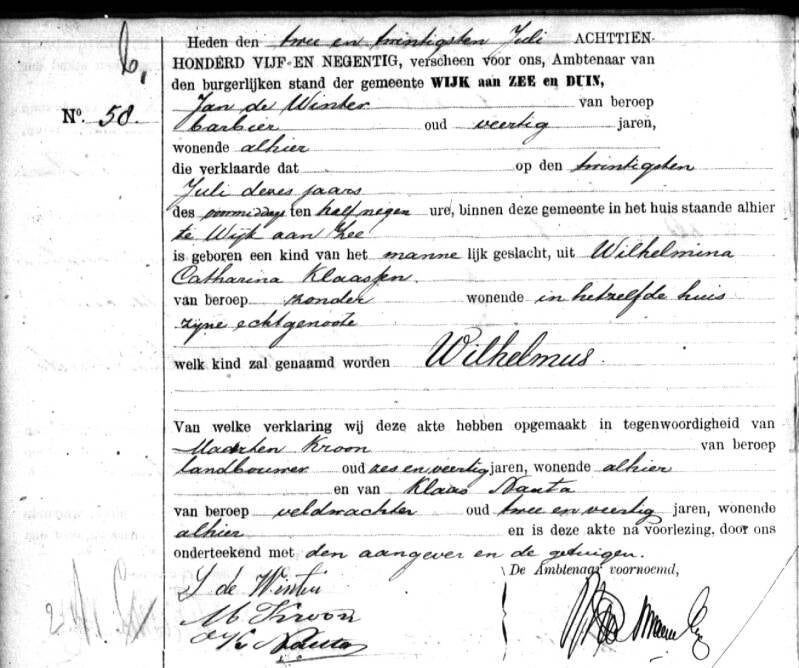 Heden den twee en twintigsten Juli ACHTTIEN-
HONDERD VIJF EN NEGENTIG, verscheen voor ons, Ambtenaar van
den burgerlijken stand der gemeente WIJK aan ZEE en DUIN,
Jan de Winter van beroep
No. 58. barbier oud veertig jaren,
wonende alhier
die verklaarde dat op den twintigsten
Juli dezes jaars
des voormiddags ten half negen ure, binnen deze gemeente in het huis staande alhier
te Wijk aan Zee
is geboren een kind van het mannelijk geslacht, uit Wilhelmina
Catharina Klaassen.
van beroep zonder wonende in hetzelfde huis
zijne echtgenoote
welk kind zal genaamd worden Wilhelmus.
Van welke verklaring wij deze akte hebben opgemaakt in tegenwoordigheid van
Maarten Kroon van beroep
landbouwer oud zes en veertig jaren, wonende alhier
en van Klaas Nauta
van beroep veldwachter oud twee en veertig jaren, wonende
alhier en is deze akte na voorlezing, door ons
onderteekend met den aangever en de getuigen.
De Ambtenaar voornoemd,
J de Winter
M Kroon
K Nauta